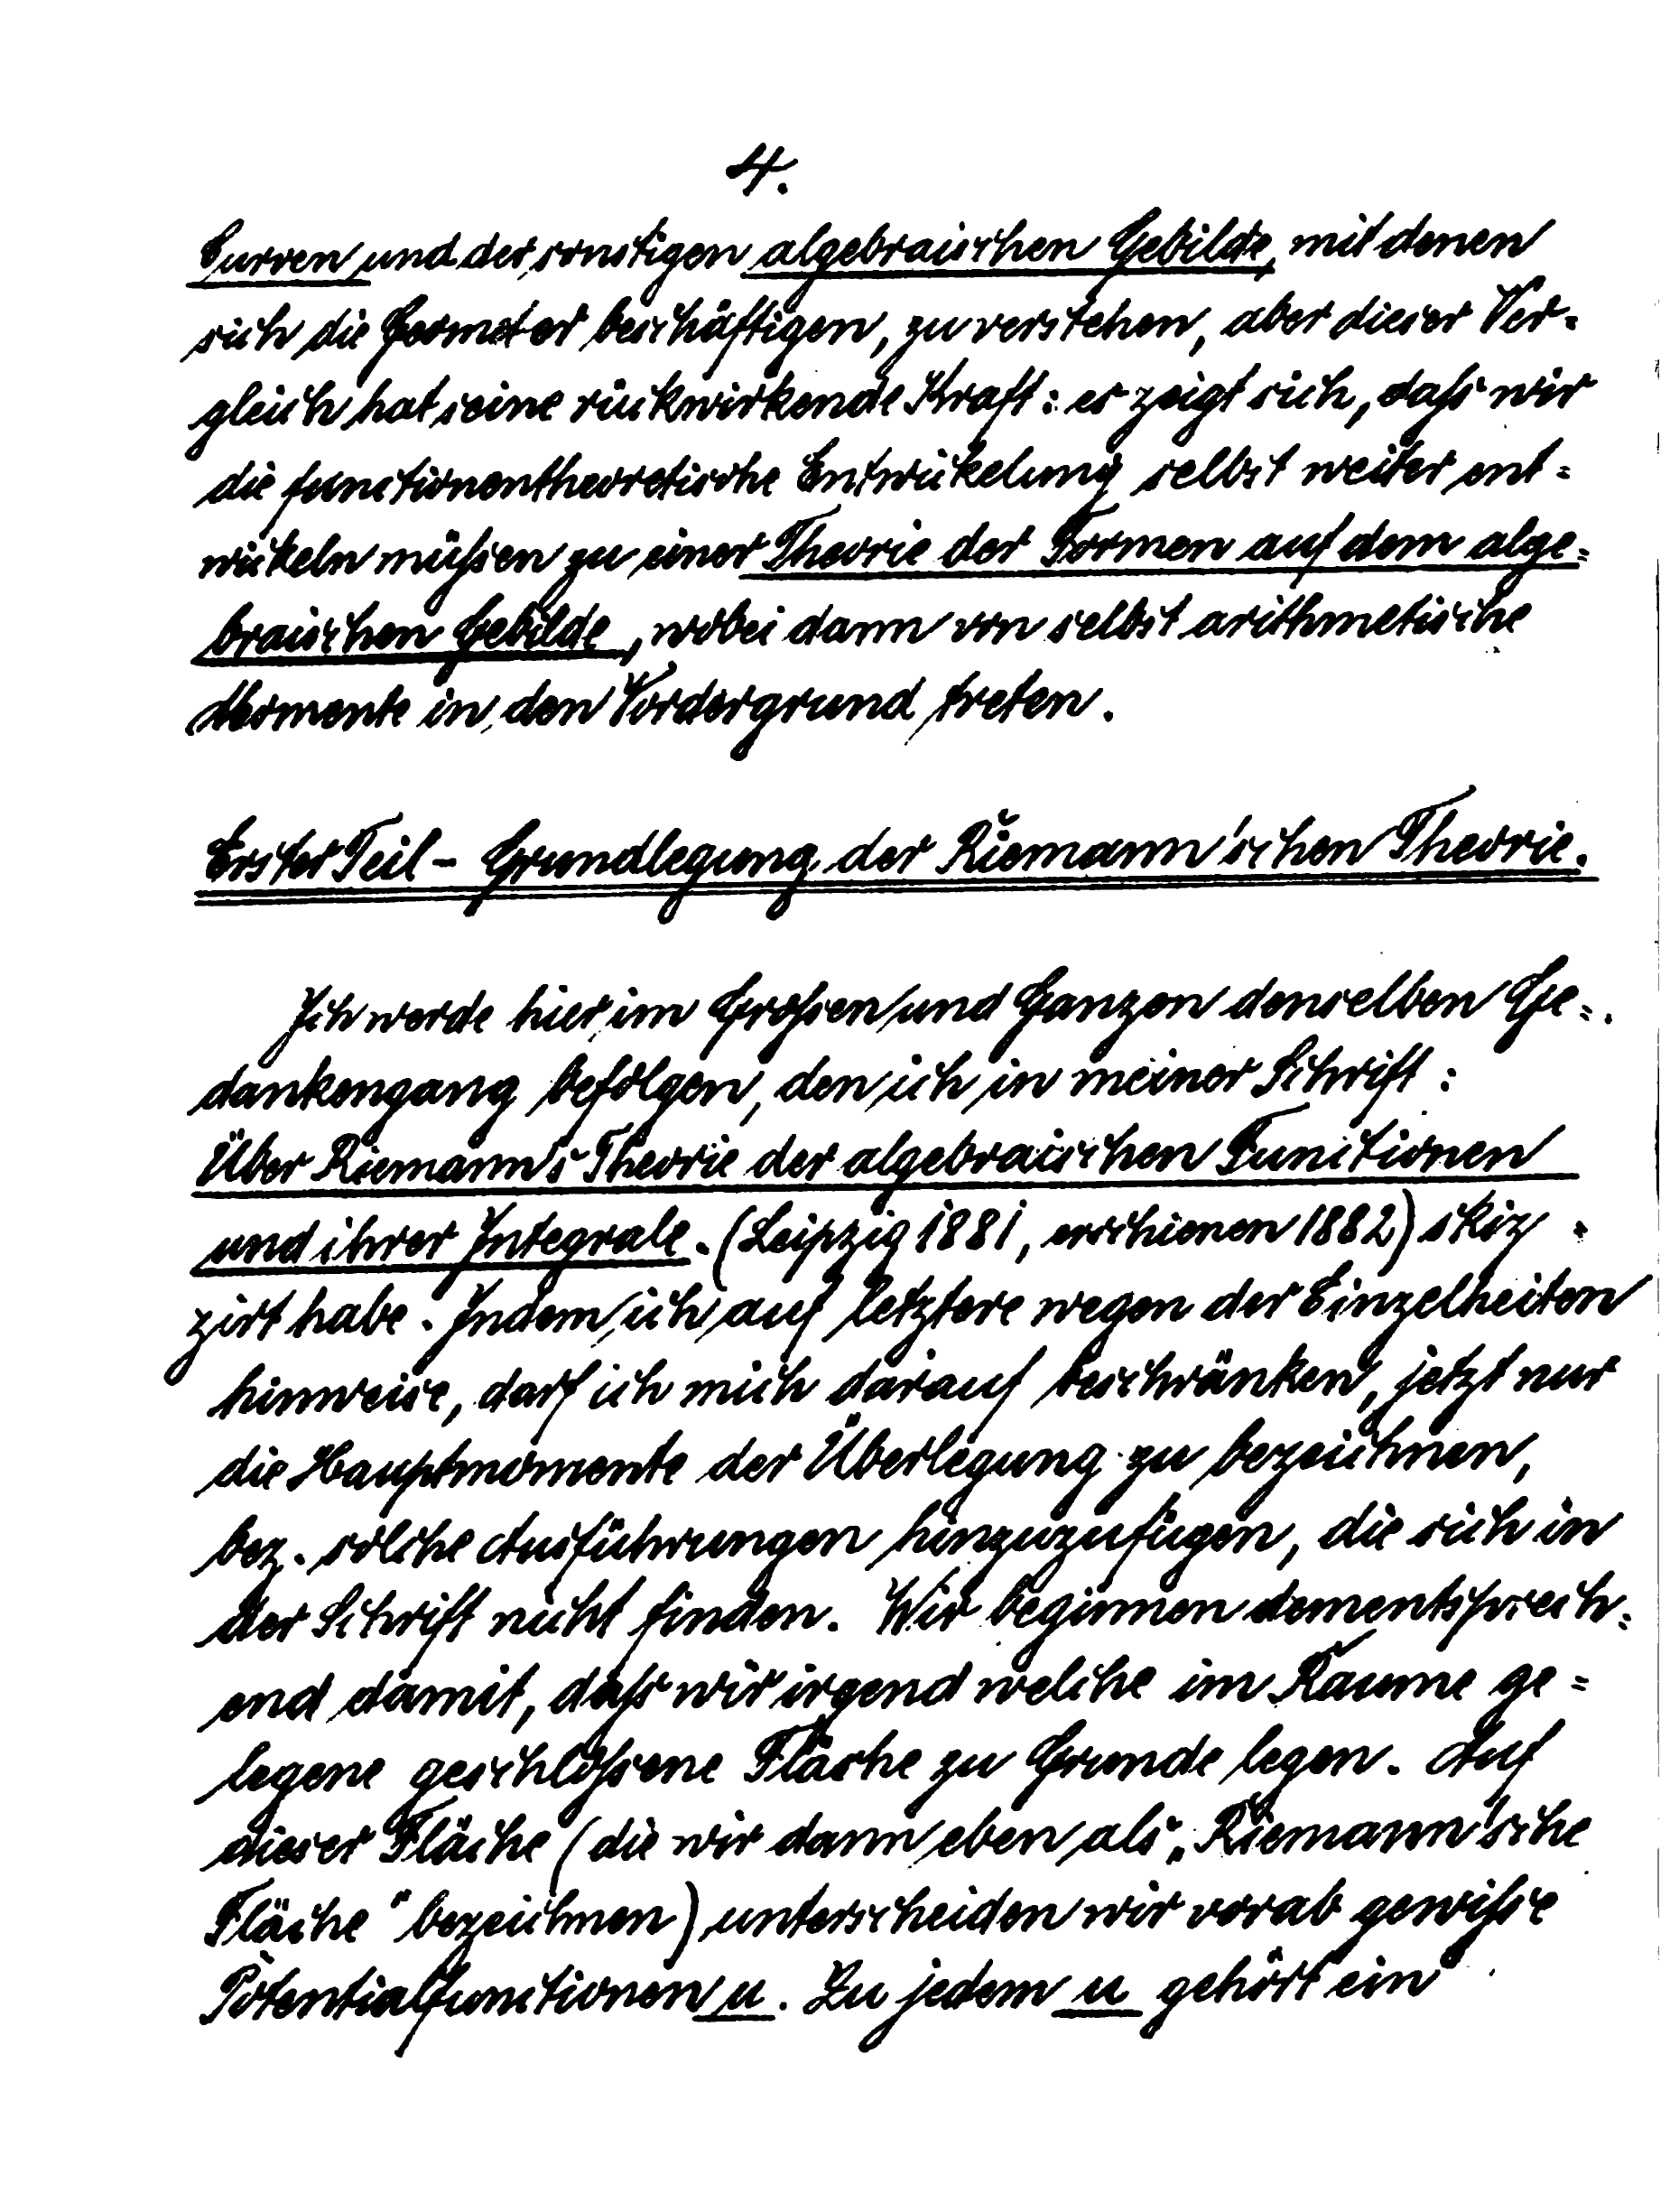 4.
Curven und der sonstigen algebraischen Gebilde, mit denen
sich die Geometer beschäftigen, zu verstehen, aber dieser Ver-
gleich hat seine rückwirkende Kraft: es zeigt sich, daß wir
die functionentheoretische Entwickelung selbst weiter ent-
wickeln müßen zu einer Theorie der Formen auf dem alge-
braischen Gebilde, wobei dann von selbst arithmetische
Momente in den Vordergrund treten.
Erster Teil - Grundlegung der Riemann'schen Theorie.
Ich werde hier im Großen und Ganzen denselben Ge-
dankengang befolgen, den ich in meiner Schrift:
Über Riemann's Theorie der algebraischen Functionen
und ihrer Integrale. (Leipzig 1881, erschienen 1882) skiz-
zirt habe. Indem ich auf letztere wegen der Einzelheiten
hinweise, darf ich mich darauf beschränken, jetzt nur
die Hauptmomente der Überlegung zu bezeichnen,
bez. solche Ausführungen hinzuzufügen, die sich in
der Schrift nicht finden. Wir beginnen dementsprech-
end damit, daß wir irgend welche im Raume ge-
legene geschloßene Fläche zu Grunde legen. Auf
dieser Fläche (die wir dann eben als „Riemann'sche
Fläche" bezeichnen) unterscheiden wir vorab gewiße
Potentialfunctionen u. Zu jedem u gehört ein